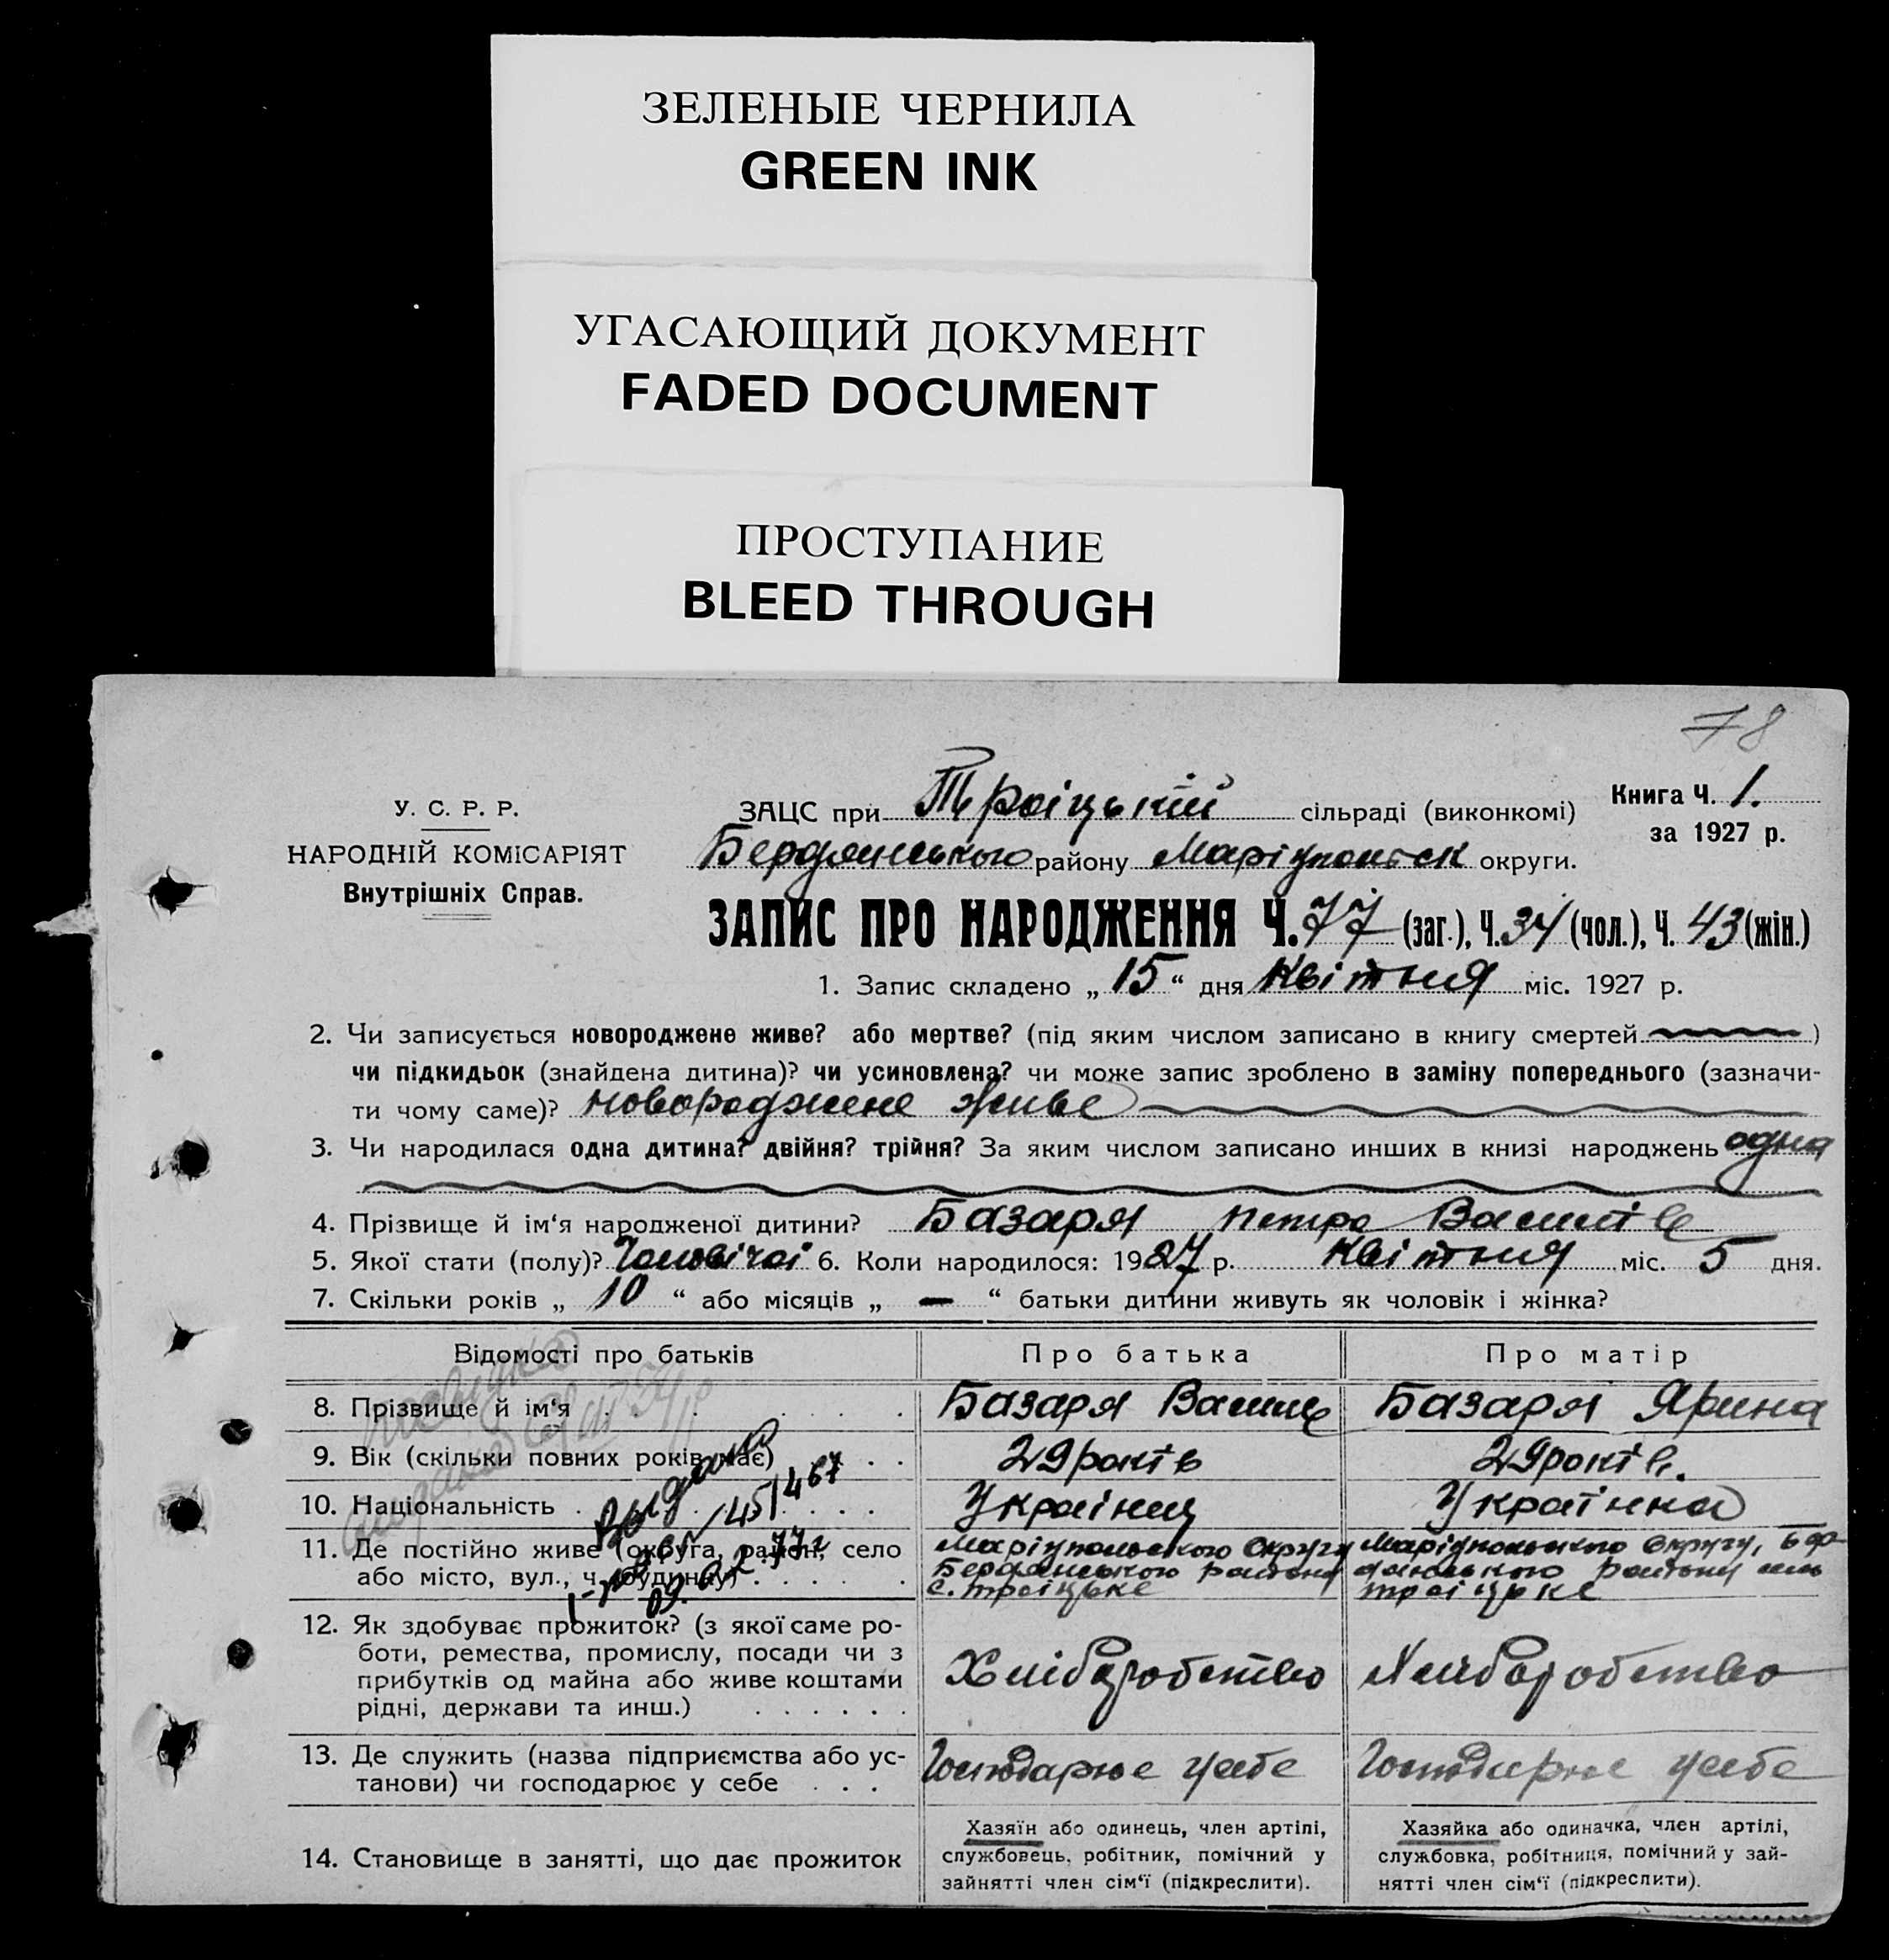 ЗЕЛЕНЫЕ ЧЕРНИЛА
GREEN INK
УГАСАЮЩИЙ ДОКУМЕНТ
FADED DOCUMENT
ПРОСТУПАНИЕ
BLEED THROUGH
78
У. С. Р. Р.
НАРОДНІЙ КОМІСАРІЯТ
Внутрішніх Справ.
ЗАЦС при Троіцькій сільраді (виконкомі)
Книга Ч. 1.
за 1927 р.
Бердянського району Маріупольск округи.
ЗАПИС ПРО НАРОДЖЕННЯ Ч. 77 (заг.), Ч. 34 (чол.), Ч. 43 (жін.)
1. Запис складено „ 15 “ дня Квітня міс. 1927 р.
2. Чи записується новороджене живе? або мертве? (під яким числом записано в книгу смертей )
чи підкидьок (знайдена дитина)? чи усиновлена? чи може запис зроблено в заміну попереднього (зазначи-
ти чому саме)? новороджене живе
3. Чи народилася одна дитина? двійня? трійня? За яким числом записано инших в книзі народжень одна
4. Прізвище й ім‘я народженої дитини? Базаря Петро Василів
5. Якої стати (полу)? Чоловічоі 6. Коли народилося: 1927 р. Квітня міс. 5 дня.
7. Скільки років „ 10 “ або місяців „ — “ батьки дитини живуть як чоловік і жінка?
Відомості про батьків Про батька Про матір
8. Прізвище й ім‘я . . . . . Базаря Василь Базаря Ярина
9. Вік (скільки повних років має) . . 29 років 29 років.
10. Національність . . . . . Украінец Украінка
11. Де постійно живе (округа, район, село
або місто, вул., ч. будинку) . . . . .
Маріупольского Округу
Бердянського району
с. Троіцьке
Маріупольского Округу, Бер
дянського району село
Троіцьке
Выдано
451467
09.02.77г
12. Як здобуває прожиток? (з якої саме ро-
боти, ремества, промислу, посади чи з
прибутків од майна або живе коштами
рідні, держави та инш.) . . . . . .
Хліборобство Хліборобство
13. Де служить (назва підприємства або ус-
танови) чи господарює у себе . . .
Господарює у себе Господарює у себе
14. Становище в занятті, що дає прожиток
Хазяїн або одинець, член артілі,
службовець, робітник, помічний у
зайнятті член сім‘ї (підкреслити).
Хазяйка або одиначка, член артілі,
службовка, робітниця, помічний у зай-
нятті член сім‘ї (підкреслити).